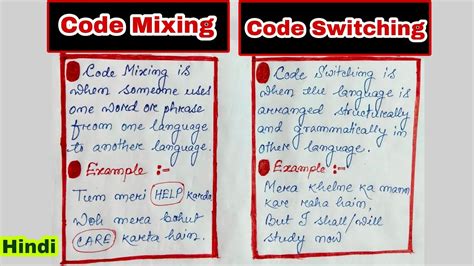 Code Mixing
Code Mixing is
when someone uses
one word or phrase
from one language
to another language.
Example :-
Tum meri HELP karda
Woh mera bohut
CARE karta hain.
Code Switching
Code Switching is
when the language is
arranged structurally
and grammatically in
other language.
Example :-
Mera khelne ka mann
kar raha hain,
But I shall/will
study now
Hindi